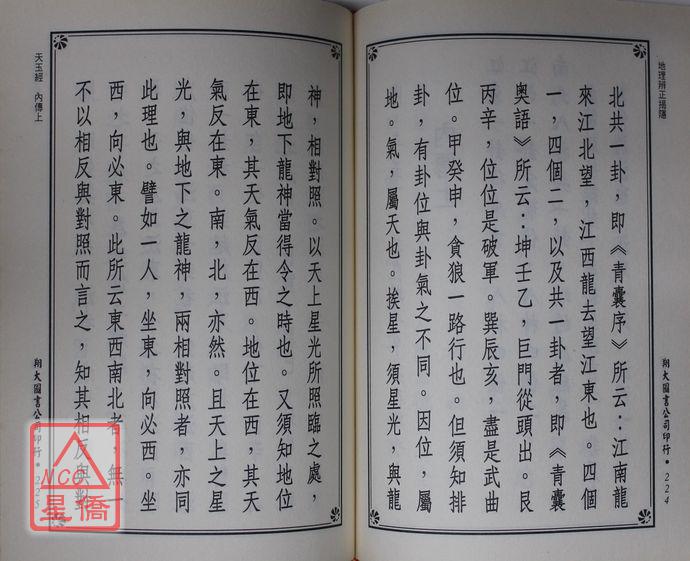 地理辨正揭隱
北共一卦，即《青囊序》所云：江南龍
來江北望，江西龍去望江東也。四個
一，四個二，以及共一卦者，即《青囊
奧語》所云：坤壬乙，巨門從頭出。艮
丙辛，位位是破軍。巽辰亥，盡是武曲
位。甲癸申，貪狼一路行也。但須知排
卦，有卦位與卦氣之不同。因位，屬
地。氣，屬天也。挨星，須星光，與龍
翔大圖書公司印行•224
神，相對照。以天上星光所照臨之處，
即地下龍神當得令之時也。又須知地位
在東，其天氣反在西。地位在西，其天
氣反在東。南，北，亦然。且天上之星
光，與地下之龍神，兩相對照者，亦同
此理也。譬如一人，坐東，向必西。坐
西，向必東。此所云東西南北者，無一
不以相反與對照而言之，知其相反與對
天玉經 內傳上
翔大圖書公司印行•225
NCC
星僑